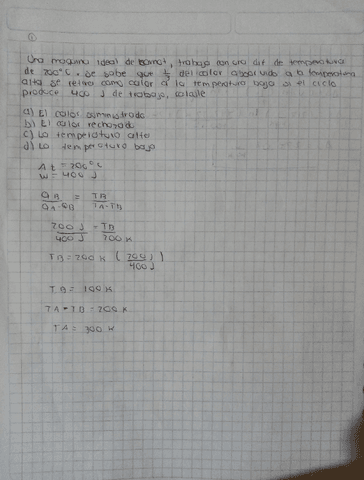 ①
Una maquina ideal de carnot, trabaja con una dif de temperatura
de 200°C. se sabe que 1/3 del calor absorvido a la temperatura
alta se retira como calor a la temperatura baja si el ciclo
produce 400 J de trabajo,
a) El calor suministrado
b) El calor rechazado
c) La temperatura alta
d) La temperatura baja
Δt = 200°C
W = 400 J
QB / QA-QB = TB / TA-TB
200 J / 400 J = TB / 200 K
TB = 200 K ( 200 J / 400 J )
TB = 100 K
TA - TB = 200 K
TA = 300 K